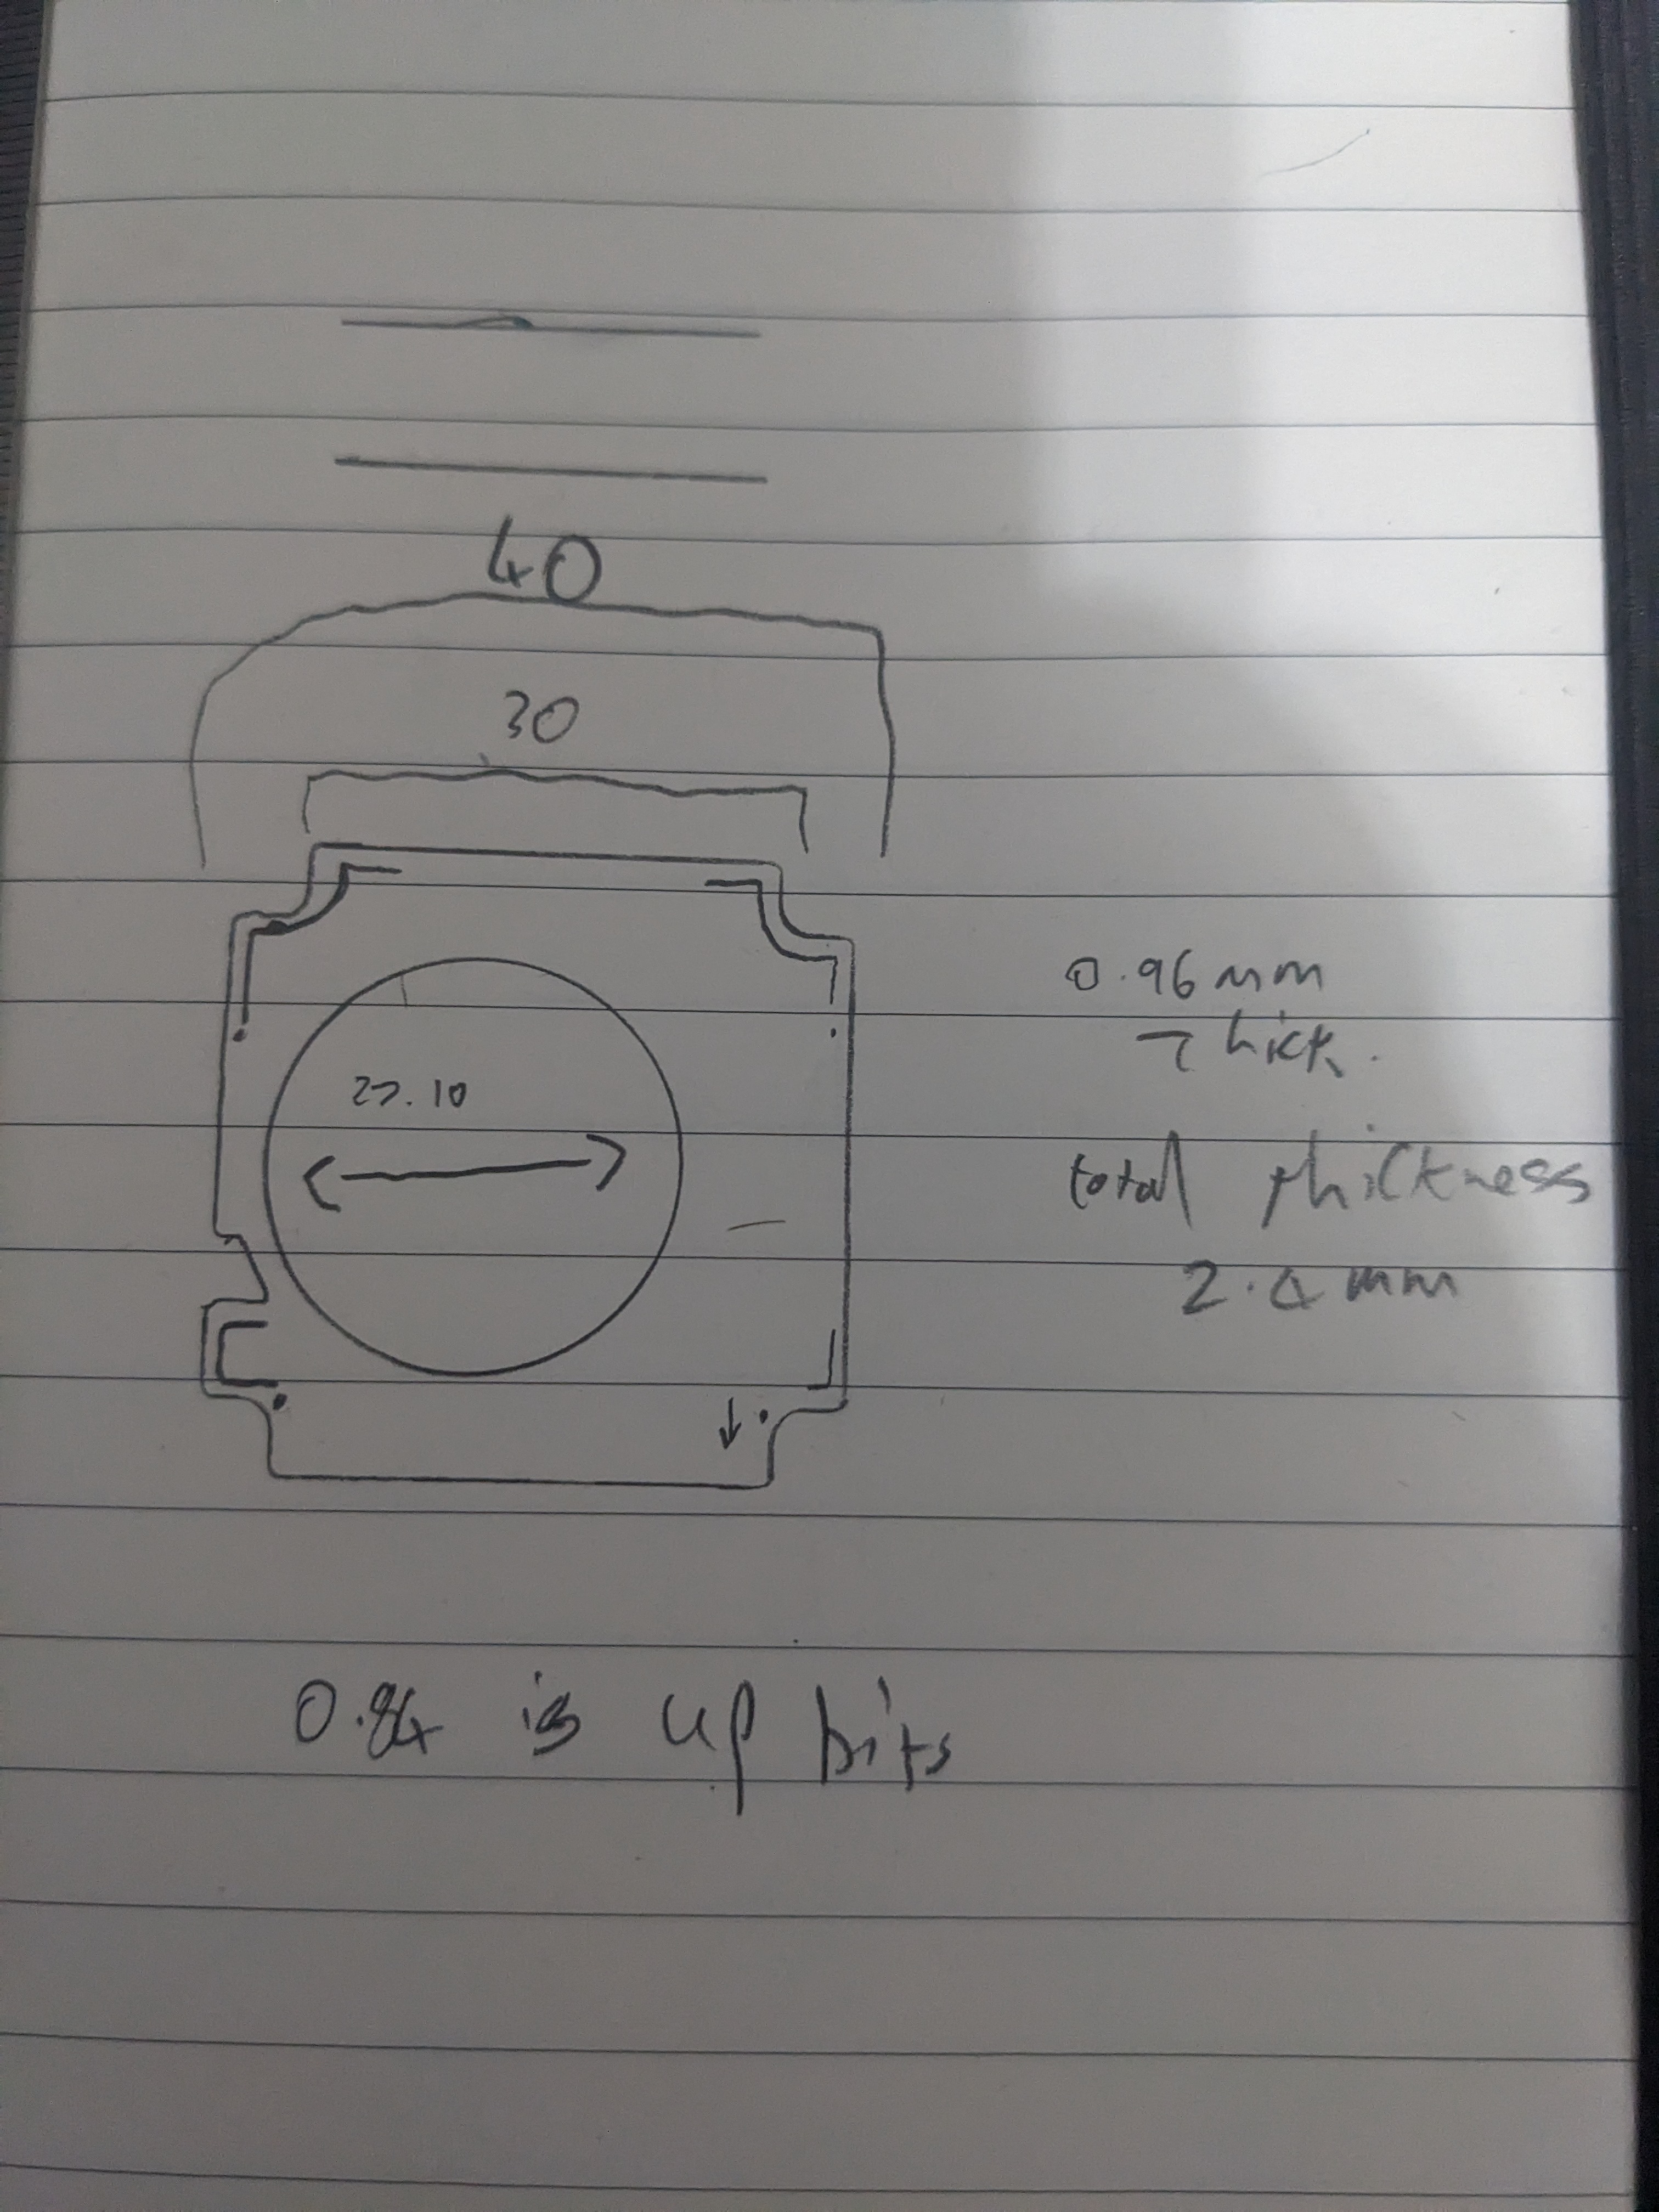 40
30
27.10
0.96mm
Thick.
total thickness
2.4mm
0.84 is up bits